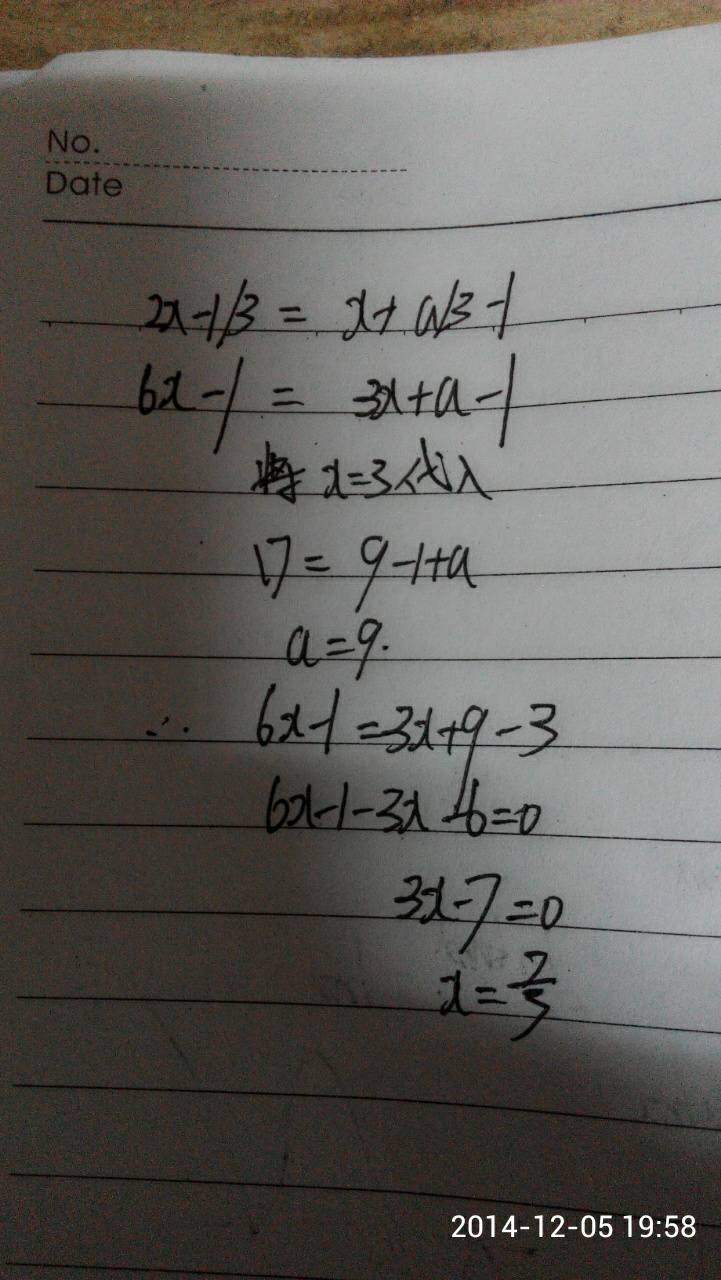 No.
Date
2x-1/3 = x+a/3-1
6x-1 = 3x+a-1
将x=3代入
17=9-1+a
a=9.
∴ 6x-1=3x+9-3
6x-1-3x-6=0
3x-7=0
x=7/3
2014-12-05 19:58